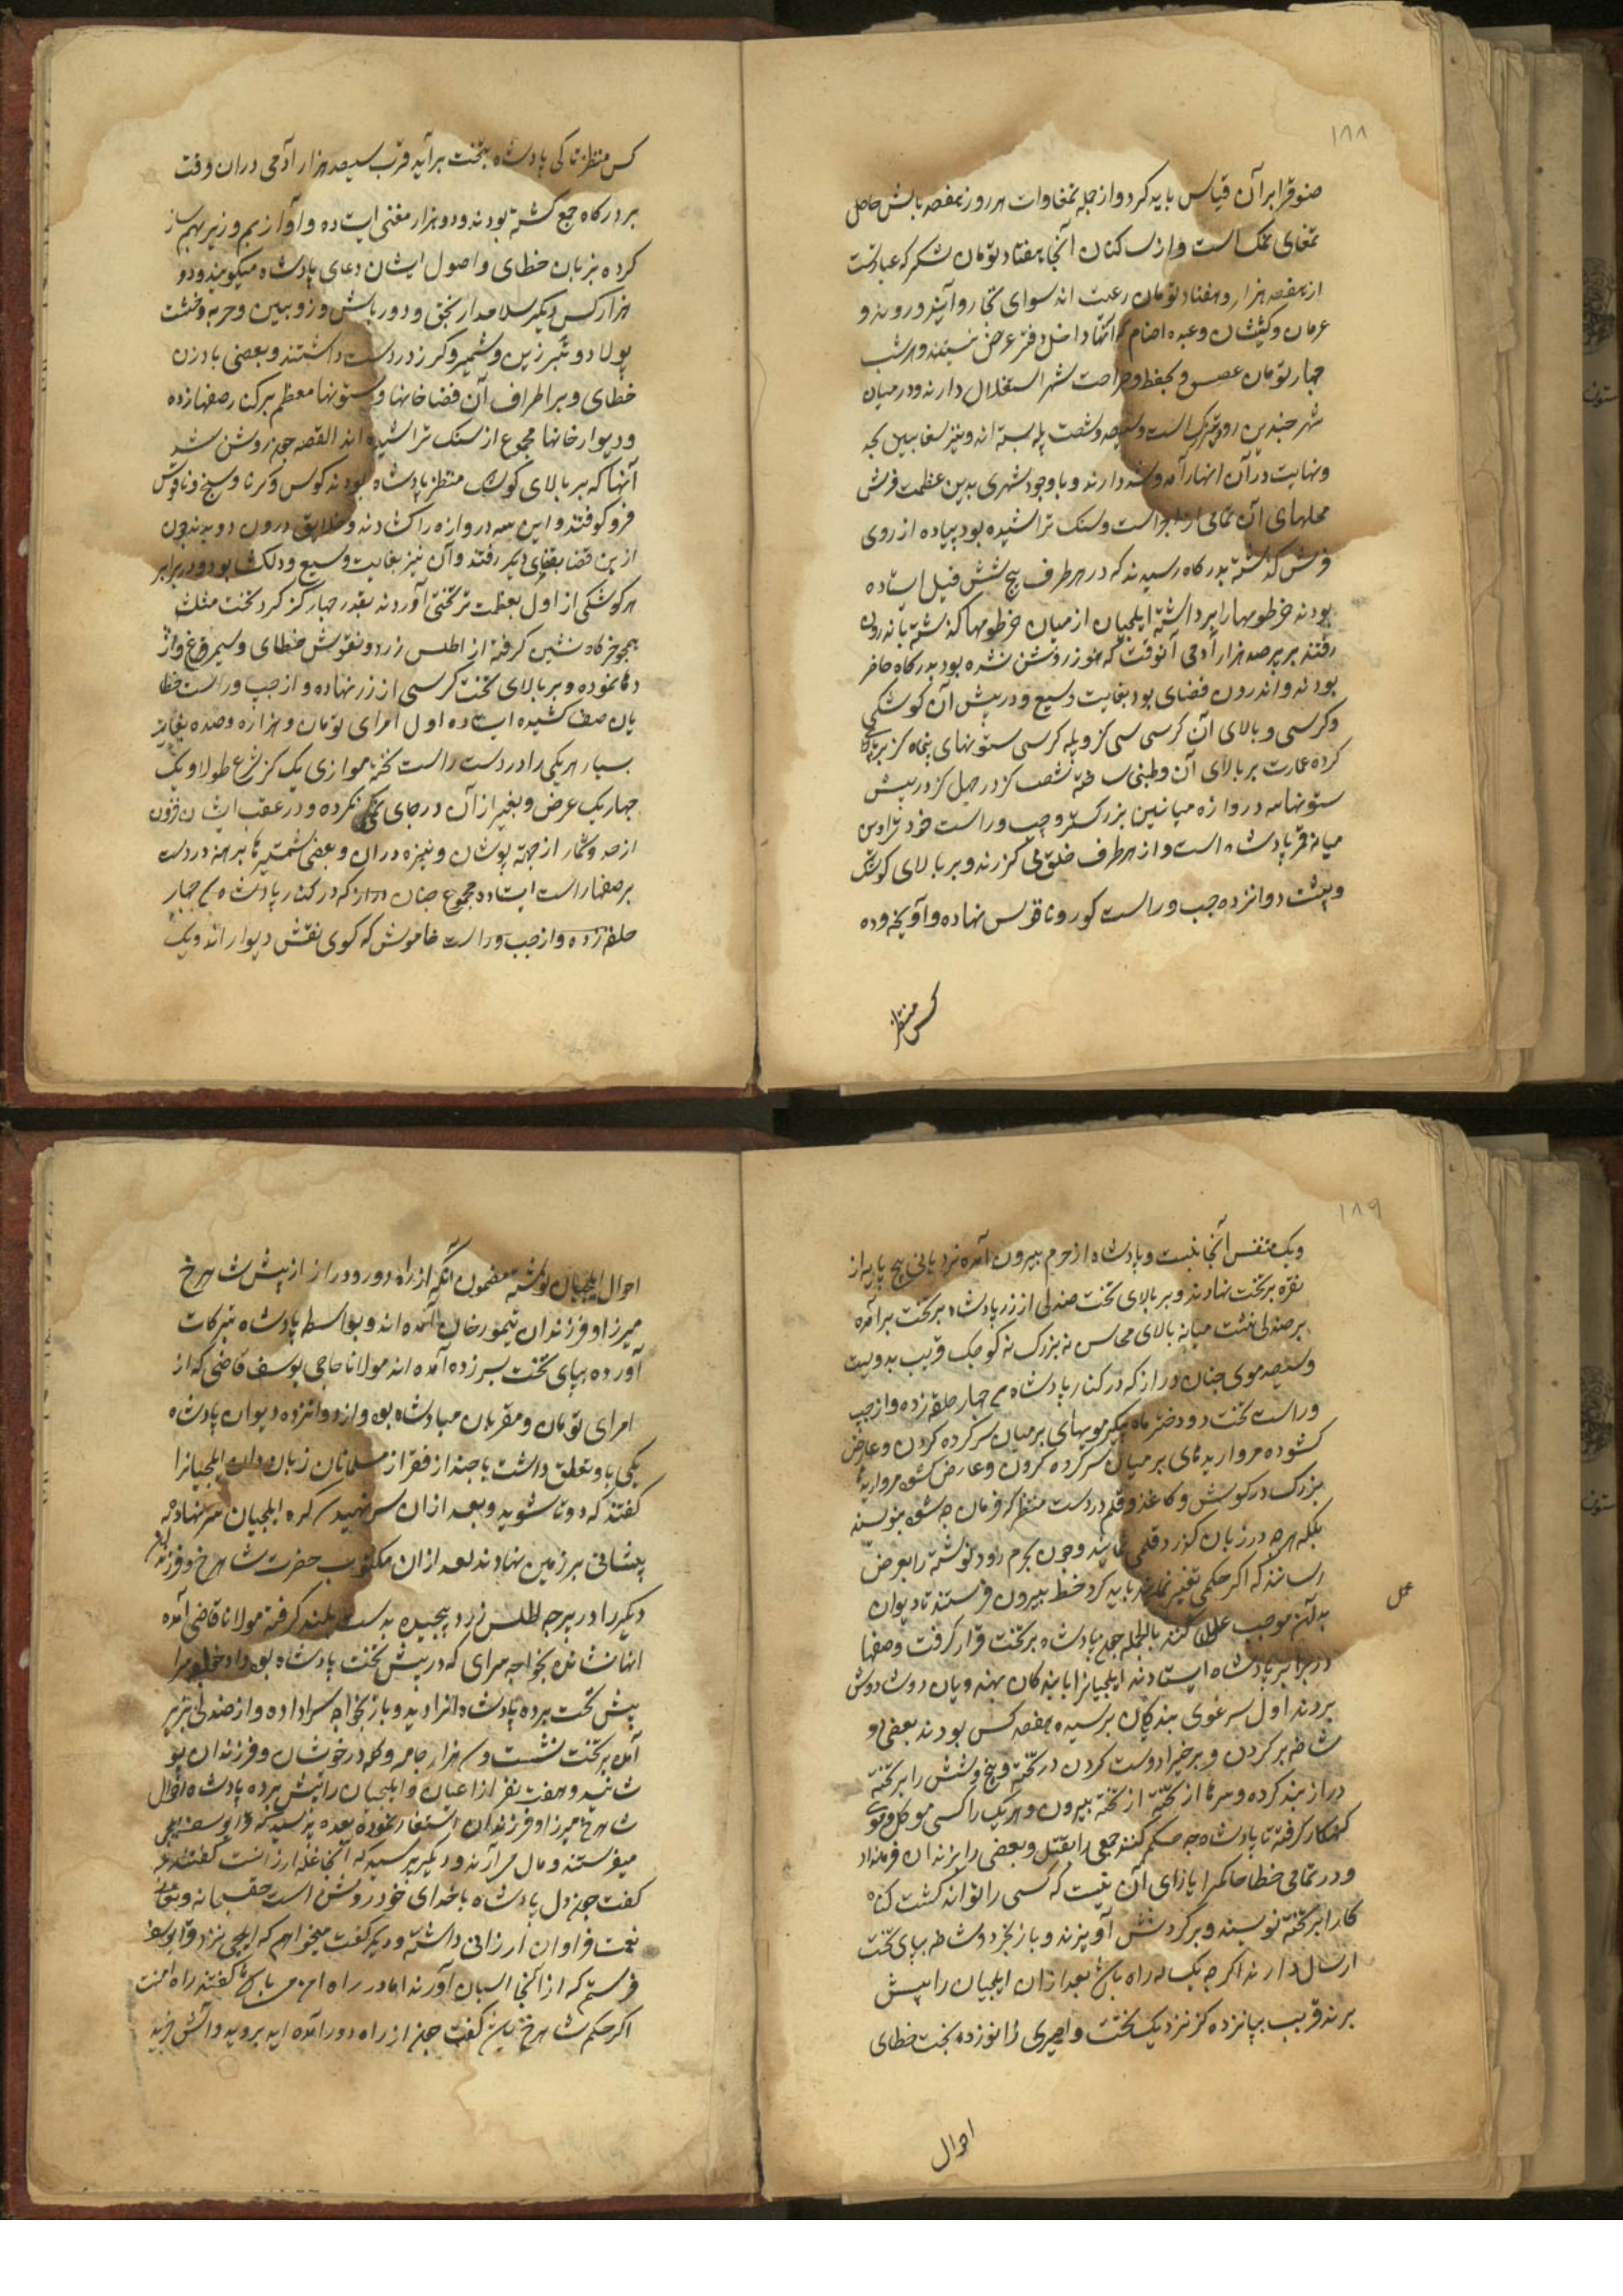 ١٨٨
صنوقرا برآن قیاس باید کرد و از جمله تمغاوات هر روز هفصد بالش حاصل
تمغای نمک است و از ساکنان آنجا هفتاد تومان شکر که عبارتست
از هفصد هزار و هفتاد تومان رعیت اند سوای تجار و آیند و روند و
غرمان و کشیشان و عبده اصنام که آنها داخل دفتر عرض نیستند و هر شب
چهار تومان عسس و بحفظ و حراصت شهر استغلال دارند و در میان
شهر چندین رود بزرک است و سیصد و شصت پله بسته اند و نیز سفاین بیحد
و نهایت در آن انهار آمد و شد دارند و با وجود شهری بدین عظمت فرش
محلهای آن تمامی از اجر است و سنک تراشیده بود پیاده از روی
فرش کذشته بدرکاه رسیدند که در هر طرف پنج شش فیل ایستاده
بودند خرطومها را برداشته ایلچیان از میان خرطومها کذشته باندرون
رفتند بر پر صد هزار آدمی آنوقت که هنوز روشن نشده بود بدرکاه حاضر
بودند و اندرون فضای بود بغایت وسیع و در پیش آن کوشکی
و کرسی و بالای آن کرسی سی کز و پله کرسی ستونهای پنجاه کز برپا
کرده عمارت بر بالای آن و طنبی ساخته شصت کز در چهل کز در پیش
ستونها سه دروازه میانین بزرکتر و چپ و راست خود تر اوس
میانه قمر پادشاه است و از هر طرف خلق می کزرند و بر بالای کوشک
و پشت دوانزده چپ و راست کور و ناقوس نهاده و آویخته و ده
کس منتظر
کس منتظر تا کی پادشاه بتخت برآید قرب سیصد هزار آدمی دران وقت
بر درکاه جمع کشته بودند و دو هزار مغنی ایستاده و آواز بم و زیر بهم ساز
کرده بزبان خطای و اصول ایشان دعای پادشاه میکویند و دو
هزار کس دیکر سلامدار بخق و دورباش و زوبین و حربه و خشت
پولاد و تبر زین و شمشیر و کرز در دست داشتند و بعضی بادزن
خطای و بر اطراف آن فضا خانها و ستونها معظم بر کنار صفها زده
و دیوار خانها مجموع از سنک تراشیده اند القصه چون روشن شد
آنها که بر بالای کوشک منتظر پادشاه بودند کوس و کرنا و سنج و ناقوس
فرو کوفتند و این سه دروازه را کشادند و خلایق درون دویدند چون
ازین فضا بفضای دیکر رفتند و آن نیز بغایت وسیع و دلکشا بود و در برابر
هر کوشکی از اول بعظمت تر تختی آوردند بقدر چهار کز کرد تخت مثلث
همچو خرکاه نشین کرفته از اطلس زرد و نقوش خطای و سیمرغ و اژ
دها نموده و بر بالای تخت کرسی از زر نهاده و از چپ و راست خطا
یان صف کشیده ایستاده اول امرای تومان و هزاره و صده بغایت
بسیار هر یکی را در دست راست تخته موازی یک کز شرع طولا و یک
چهار یک عرض و بغیر از آن در جای نکرده و در عقب ایشان افزون
از حد و شمار از جبه پوشان و نیزه دران و بعضی شمشیرها برهنه در دست
بر صفها راست ایستاده مجموع چنان دراز که در کنار پادشاه ۳ چهار
حلقه زده و از چپ و راست خاموش که کوی نقش دیوار اند و یک
١٨٩
و یک متنفس آنجا نیست و پادشاه از حرم بیرون آمده نردبانی پنج پایه از
نقره بر تخت نهادند و بر بالای تخت صندلی از زر پادشاه بر تخت برآمده
بر صندلی نشست میانه بالای محاسن نه بزرک نه کوچک قریب بدویست
و سیصد موی چنان دراز که در کنار پادشاه ۳ چهار حلقه زده و از چپ
و راست تخت دو دختر ماه پیکر مویهای بر میان سر کرده کردن و عارض
کشوده مرواریدهای بر میان سر کرده کردن و عارض کشوده مرواریدها
بزرک در کوش و کاغذ و قلم در دست منتظر که فرمان چه شود بنویسند
بلکه هرچه در زبان کزرد قلمی نمایند و چون بحرم رود نوشته را بعرض
رسانند که اکر حکمی تغییر باید کرد خط بیرون فرستند تا دیوان
بدان موجب عمل کنند بالجمله چون پادشاه بر تخت قرار کرفت و صفها
عمل
در برابر پادشاه ایستادند ایلچیانرا با بندکان بهنه و یان دوش دوش
بردند اول سرغوی بندکیان پرسیده هفصد کس بودند بعضی دو
شاخه بر کردن و برخیرا دوست کردن در تخته و پنج و شش را بر تخته
دراز بند کرده و سرها از تخته از تخته بیرون و هر یک را کسی موکل و موی
کنهکار کرفته تا پادشاه چه حکم کنند جمعی را بقتل و بعضی را بزندان فرمتاد
و در تمامی خطا حاکمرا یارای آن نیست که کسی را تواند کشت کناه
کارا بر تخته نویسند و بر کردنش آویزند و با زنجیر و دوشاخه بپای تخت
ارسال دارند اکر چه یک ساله راه باشد بعد ازان ایلچیان را پیش
بردند قریب پانزده کز نزدیک تخت و امیری زانو زده بخت خطای
احوال
احوال ایلچیان نوشته مضمون آنکه از راه دور و دراز از پیش شاهرخ
میرزا و فرزندان تیمور خان آمده اند و بواسطه پادشاه تبرکات
آورده بپای تخت بسر زده آمده اند مولانا حاجی یوسف قاضی که از
امرای تومان و مقربان پادشاه بود و از دوانزده دیوان پادشاه
یکی باو تعلق داشت با چند از فقر از مسلمانان زبان دان ایلچیانرا
کفتند که دوتا شوید و بعد ازان سر نهید ۳ کره ایلچیان سر نهاده
پیشانی بر زمین نهادند بعد ازان مکتوب حضرت شاهرخ و فرزندان
دیکر را در پرچه اطلس زرد پیچیده بدست بلند کرفته مولانا قاضی آمده
انها نشانده بخواجه سرای که در پیش تخت پادشاه بود داد خواجه سرا
پیش تخت برده پادشاه انرا دید و باز بخواجه سرا داده و از صندلی بزیر
آمده بر تخت نشست و ۳ هزار جامه و کله در خوشان و فرزندان پو
شانید و هفت نفر از اعیان و ایلچیان را پیش برده پادشاه احوال
شاهرخ میرزا و فرزندان استفسار نموده بعده پرسید که قرا یوسف ایلچی
میفرستند و مال می آرند و دیکر پرسید که آنجا غله ارزانست کفتند بله
کفت چون دل پادشاه با خدای خود روشن است حق سبحانه و تعالی
نعمت فراوان ارزانی داشته و دیکر کفت میخواهم که ایلچی نزد قرا یوسف
فرستم که از انجا اسبان آورند اما در راه امن می باشد کفتند راه امنست
اکر حکم شاهرخ باشد کفت چون از راه دور آمده اید بروید و آش خورید